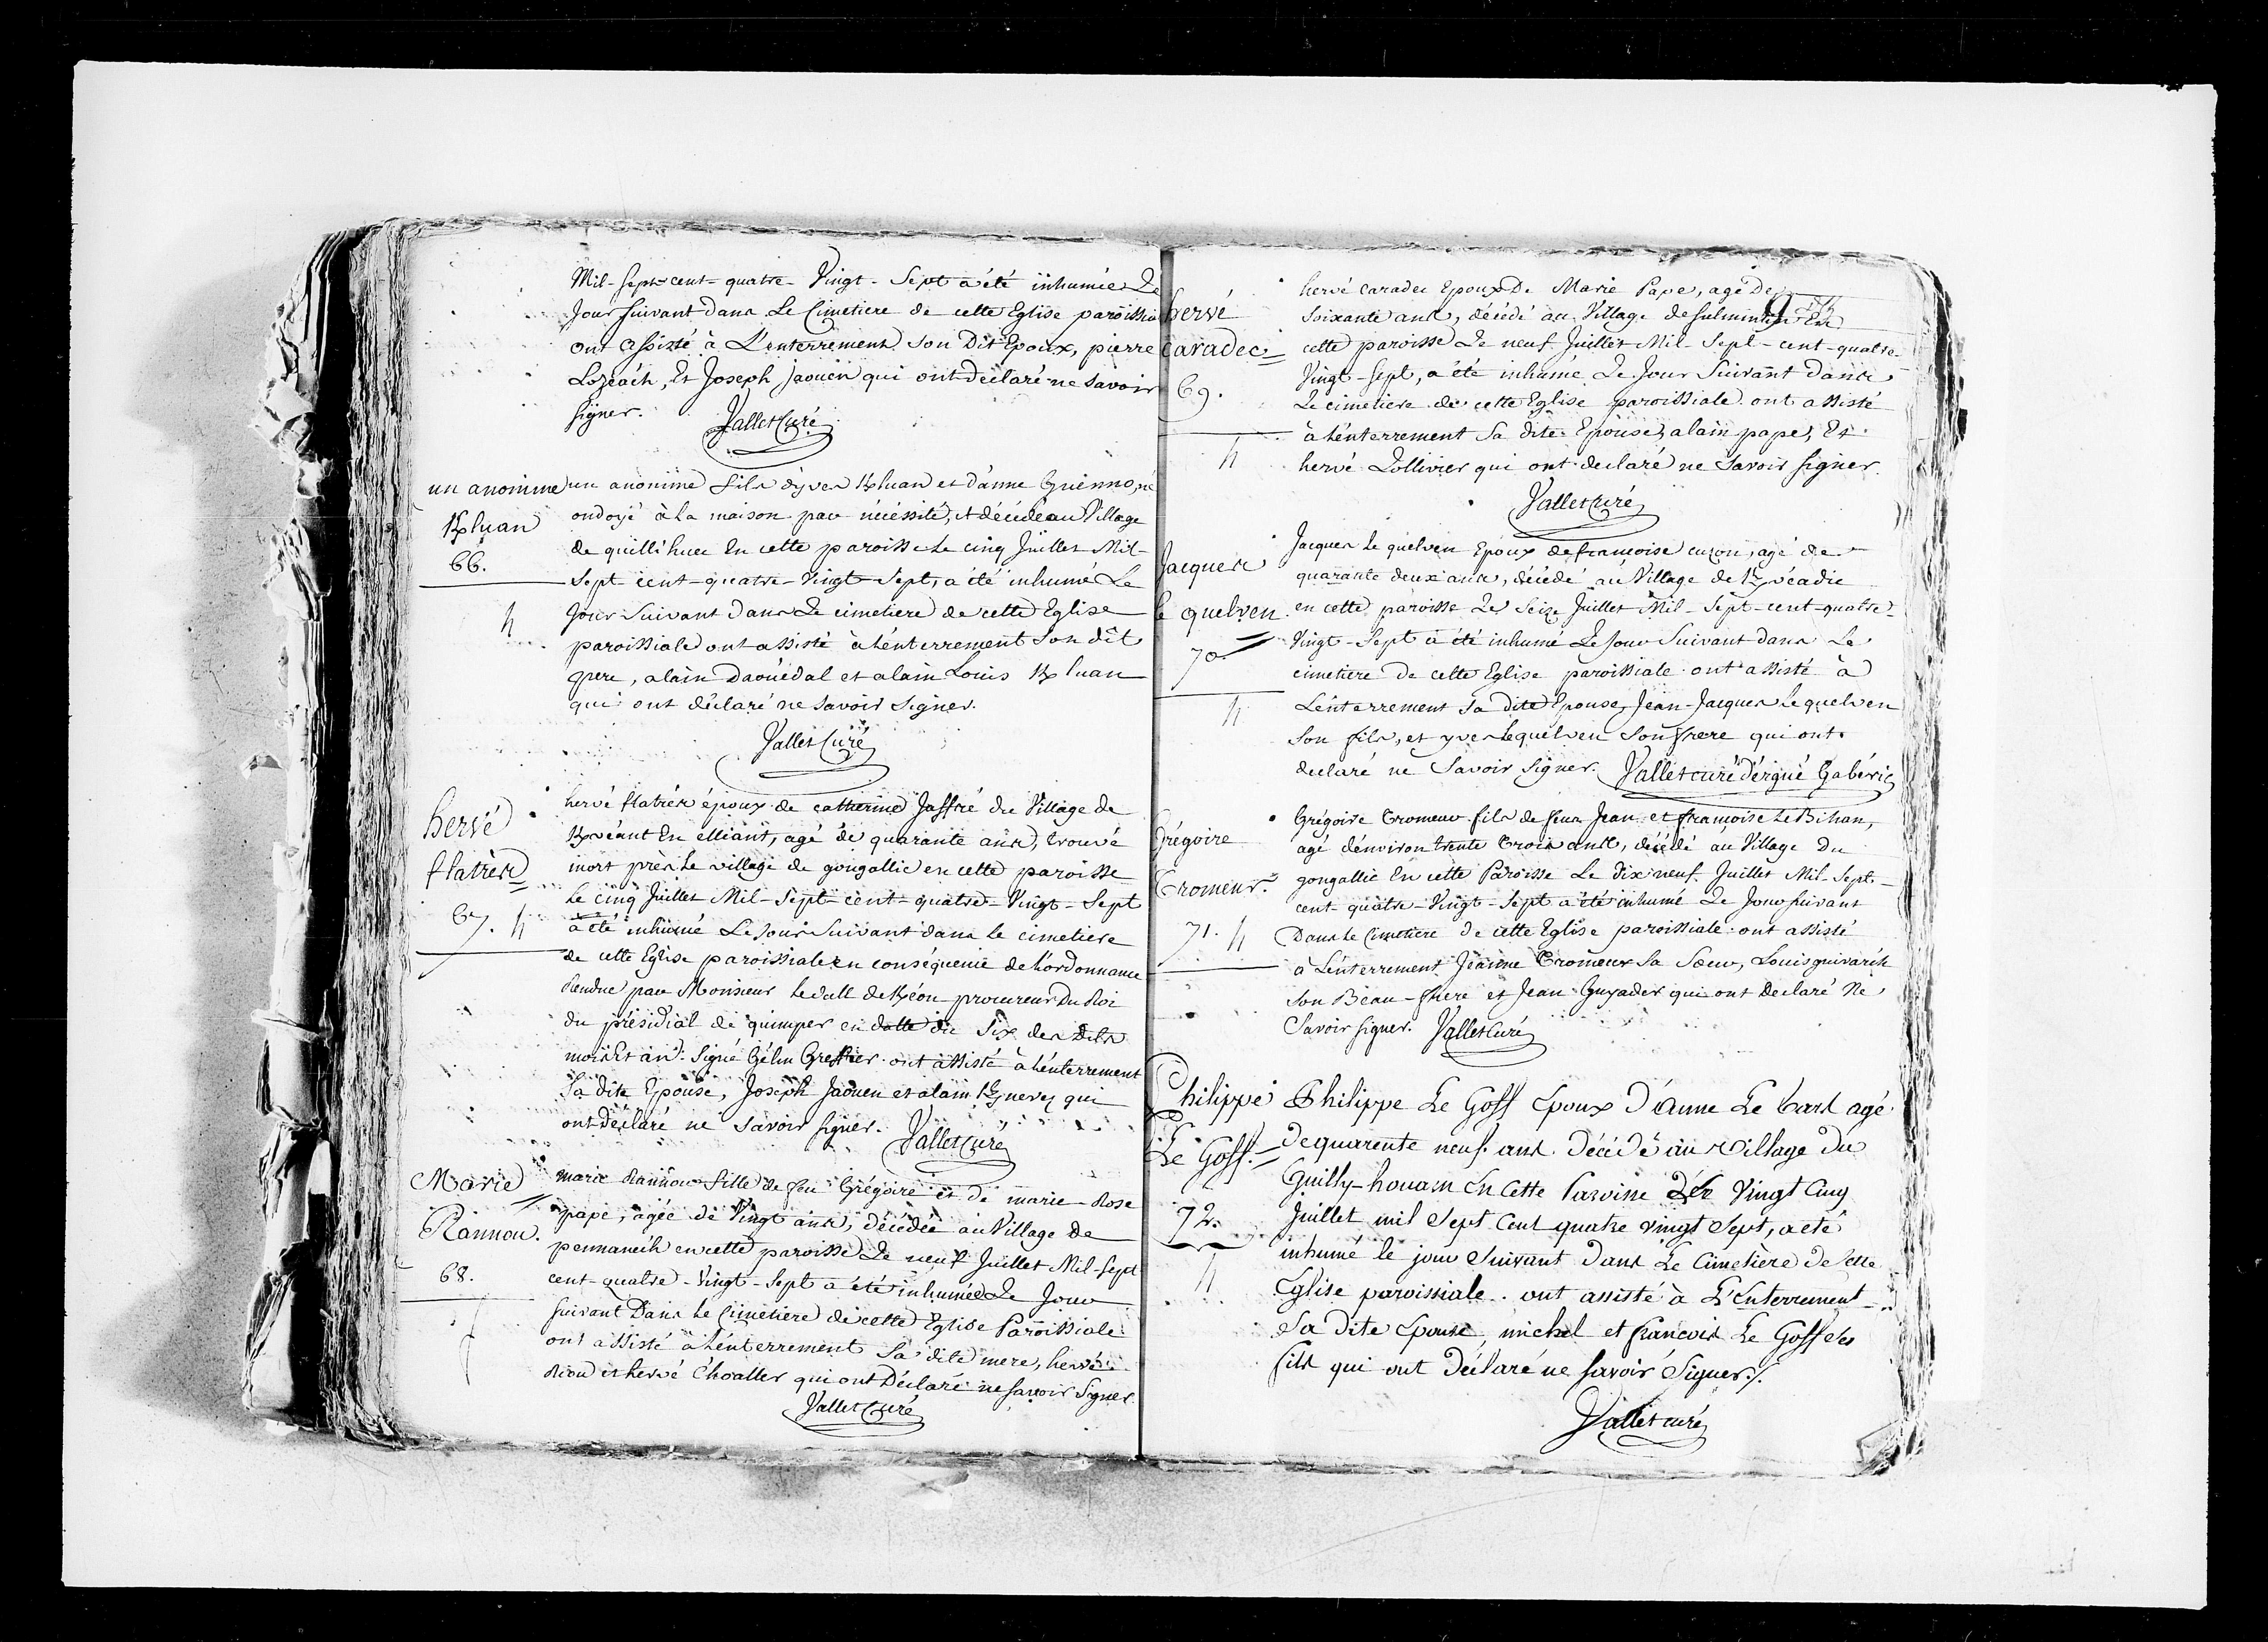 Mil-sept-cent-quatre-Vingt-Sept a été inhumée Le
Jour suivant dans Le Cimetiere de cette Eglise paroissia
ont assisté à L'enterrement son Dit Epoux, pierre
Lozeach, Et Joseph Jaouen qui ont declaré ne savoir
signer. Vallet Curé
un anonime
K/luan
66.
h
un anonime fils d'yves K/luan et d'anne Guenno, né
ondoyé à la maison par nécéssité, et décédé au Village
de quillihuec En cette paroisse Le cinq Juillet Mil-
Sept cent-quatre-Vingt-Sept, a été inhumé Le
Jour Suivant dans Le cimetiere de cette Eglise
paroissiale ont assisté à L'enterrement Son dit
pere, alain Daouédal et alain Louis K/luan
qui ont déclaré ne Savoir Signer.
Vallet Curé
hervé
flatrès
67. h
hervé flatrés époux de catherine Jaffré du Village de
K/véant En elliant, agé de quarante ans, trouvé
mort près le village de gongallic en cette paroisse
Le cinq Juillet Mil-Sept-cent-quatre-Vingt-Sept
a été inhumé Le Jour Suivant dans le cimetiere
de cette Eglise paroissiale en conséquence de L'ordonnance
Rendue par Monsieur Le dall de K/éon procureur Du Roi
du présidial de quimper en datte du Six des Dits
mois Et an. Signé Gélin Greffier. ont assisté à L'enterrement
Sa dite Epouse, Joseph Jaouen et alain K/gnevez qui
ont Déclaré ne Savoir signer. Vallet Curé
Marie
Rannou.
68.
marie Rannou fille de feu Grégoire et de marie-Rose
pape, agée de Vingt ans, décédée au Village de
pennaneih en cette paroisse Le neuf Juillet Mil-Sept
cent-quatre-Vingt-Sept a été inhumée Le Jour
suivant Dans Le Cimetiere de cette Eglise Paroissiale
ont assisté à L'enterrement Sa dite mere, hervé
Riou et hervé Choaller qui ont Déclaré ne Savoir Signer.
Vallet Curé
hervé
Caradec
69.
h
hervé Caradec Epoux De Marie Pape, agé De
Soixante ans, décédé au Village de En
cette paroisse Le neuf Juillet Mil-Sept-cent-quatre-
Vingt-Sept, a été inhumé Le Jour Suivant dans
Le cimetiere de cette Eglise paroissiale ont assisté
à L'enterrement Sa dite Epouse, alain pape, Et
hervé Lollivier qui ont declaré ne Savoir Signer.
Vallet Curé
Jacques
le quelven
70.
h
Jacques Le quelven Epoux de françoise cuzon, agé de
quarante deux ans, décédé au Village de K/véadic
en cette paroisse Le Seize Juillet Mil-Sept-cent-quatre-
Vingt-Sept a été inhumé Le Jour Suivant dans Le
cimetiere de cette Eglise paroissiale ont assisté à
L'enterrement Sa dite Epouse, Jean-Jacques Le quelven
Son fils, et yves Le quelven Son frere qui ont
declaré ne Savoir Signer. Vallet curé d'érgué Gabéric
Grégoire
Cromeur.
71. h
Grégoire Cromeur fils de feus Jean et françoise Le Bihan,
agé d'environ trente trois ans, décédé au Village du
gongallic En cette Paroisse Le Dix neuf Juillet Mil-Sept-
cent-quatre-Vingt-Sept a été inhumé Le Jour Suivant
Dans Le Cimetiere de cette Eglise paroissiale ont assisté
à L'enterrement Jeanne Cromeur Sa Sœur, Louis guivarch
Son Beau-frere et Jean Guyader qui ont Declaré Ne
Savoir signer. Vallet Curé
Philippe
Le Goff.
72.
h
Philippe Le Goff Epoux D'anne Le Bars agé
de quarente neuf ans Décédé au Village du
Quilly-houarn En Cette Paroisse Le Vingt Cinq
Juillet mil Sept Cent quatre vingt Sept, a été
inhumé le jour Suivant Dans Le Cimetière de Cette
Eglise paroissiale. ont assisté à L'Enterrement
Sa Dite Epouse, michel et françois Le Goff Ses
fils qui ont Déclaré ne savoir Signer./.
Vallet curé